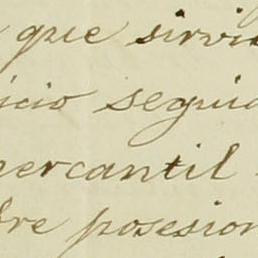 que sirvi
icio seguid
mercantil
bre posesion